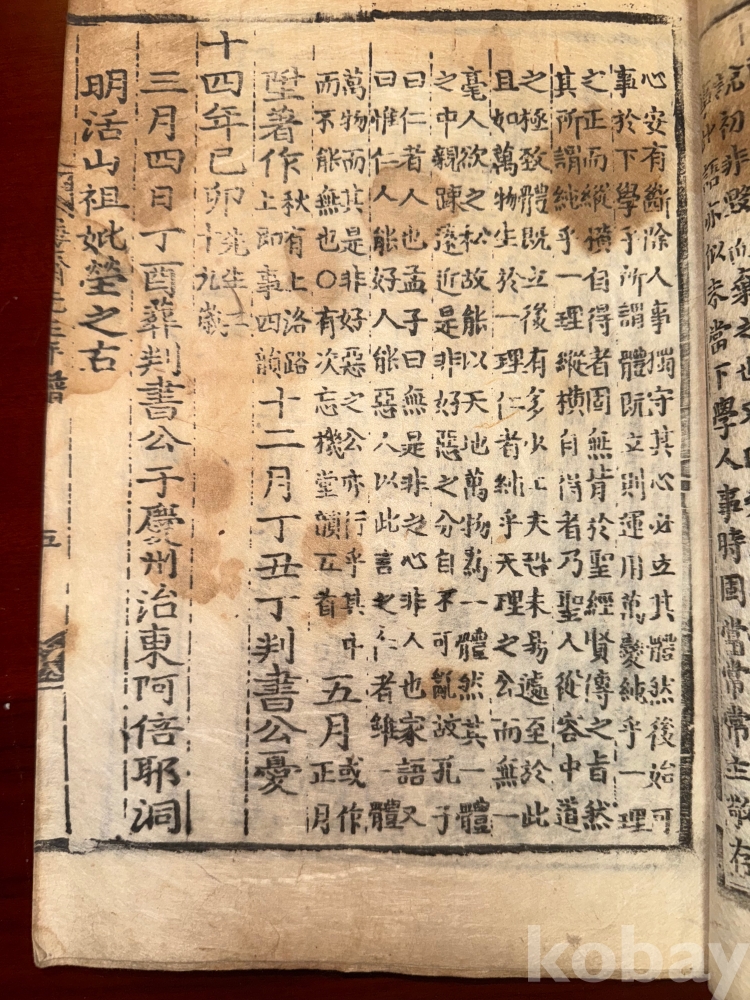 語亦似未當下學人事時固當常常主敬存
心安有斷除人事獨守其心必立其體然後始可
事於下學乎所謂體既立則運用萬變純乎一理
之正而縱横自得者固無背於聖經賢傳之旨然
其所謂純乎一理縱横自得者乃聖人從容中道
之極致體既立後有多少工夫恐未易遽至於此
且如萬物生於一理仁者純乎天理之公而無一
毫人欲之私故能以天地萬物爲一體然其一體
之中親踈遠近是非好惡之分自不可亂故孔子
曰仁者人也孟子曰無是非之心非人也家語又
曰惟仁人能好人能惡人以此言之仁者雖一體
萬物而其是非好惡之公亦行乎其中
而不能無也○有次忘機堂韻五首
五月或作正月
陞著作秋有上洛路上即事四韻十二月丁丑丁判書公憂
十四年己卯先生二十九歲
三月四日丁酉葬判書公于慶州治東阿倍耶洞
明活山祖妣塋之右
五
kobay